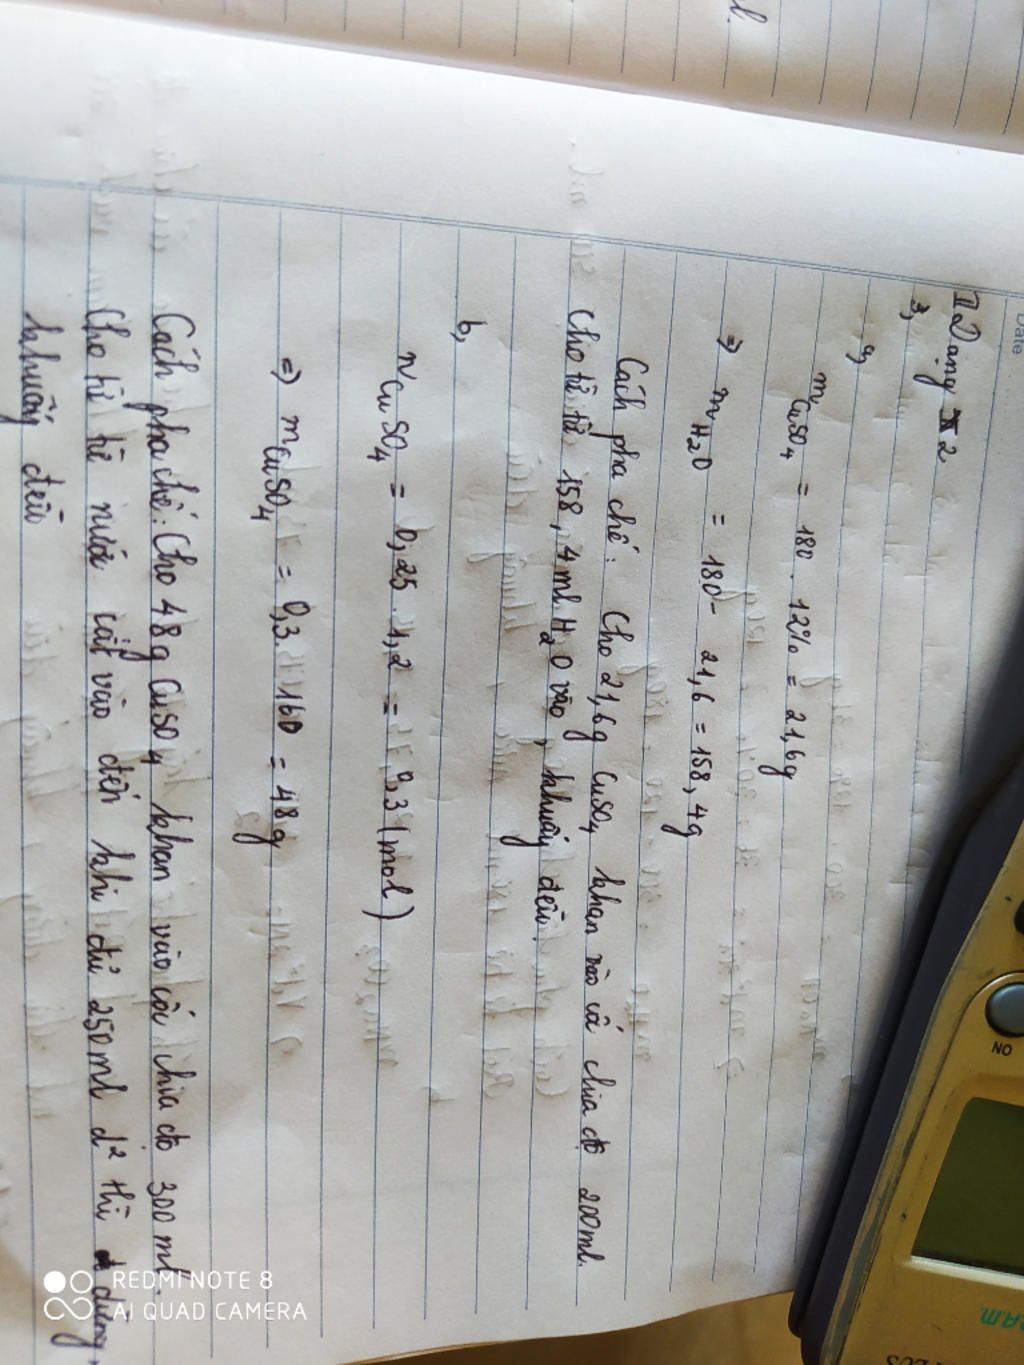 Date
II Dạng 2
3,
a, mCuSO4 = 180 . 12% = 21,6g
=> mH2O = 180 - 21,6 = 158,4g
Cách pha chế: Cho 21,6g CuSO4 khan vào cố chia độ 200ml.
Cho từ từ 158,4ml H2O vào, khuấy đều.
b,
nCuSO4 = 0,25 . 1,2 = 0,3 (mol)
=> mCuSO4 = 0,3 . 160 = 48g
Cách pha chế: Cho 48g CuSO4 khan vào cốc chia độ 300ml.
Cho từ từ nước cất vào đến khi đủ 250ml d² thì dừng,
khuấy đều
ON
REDMI NOTE 8
AI QUAD CAMERA